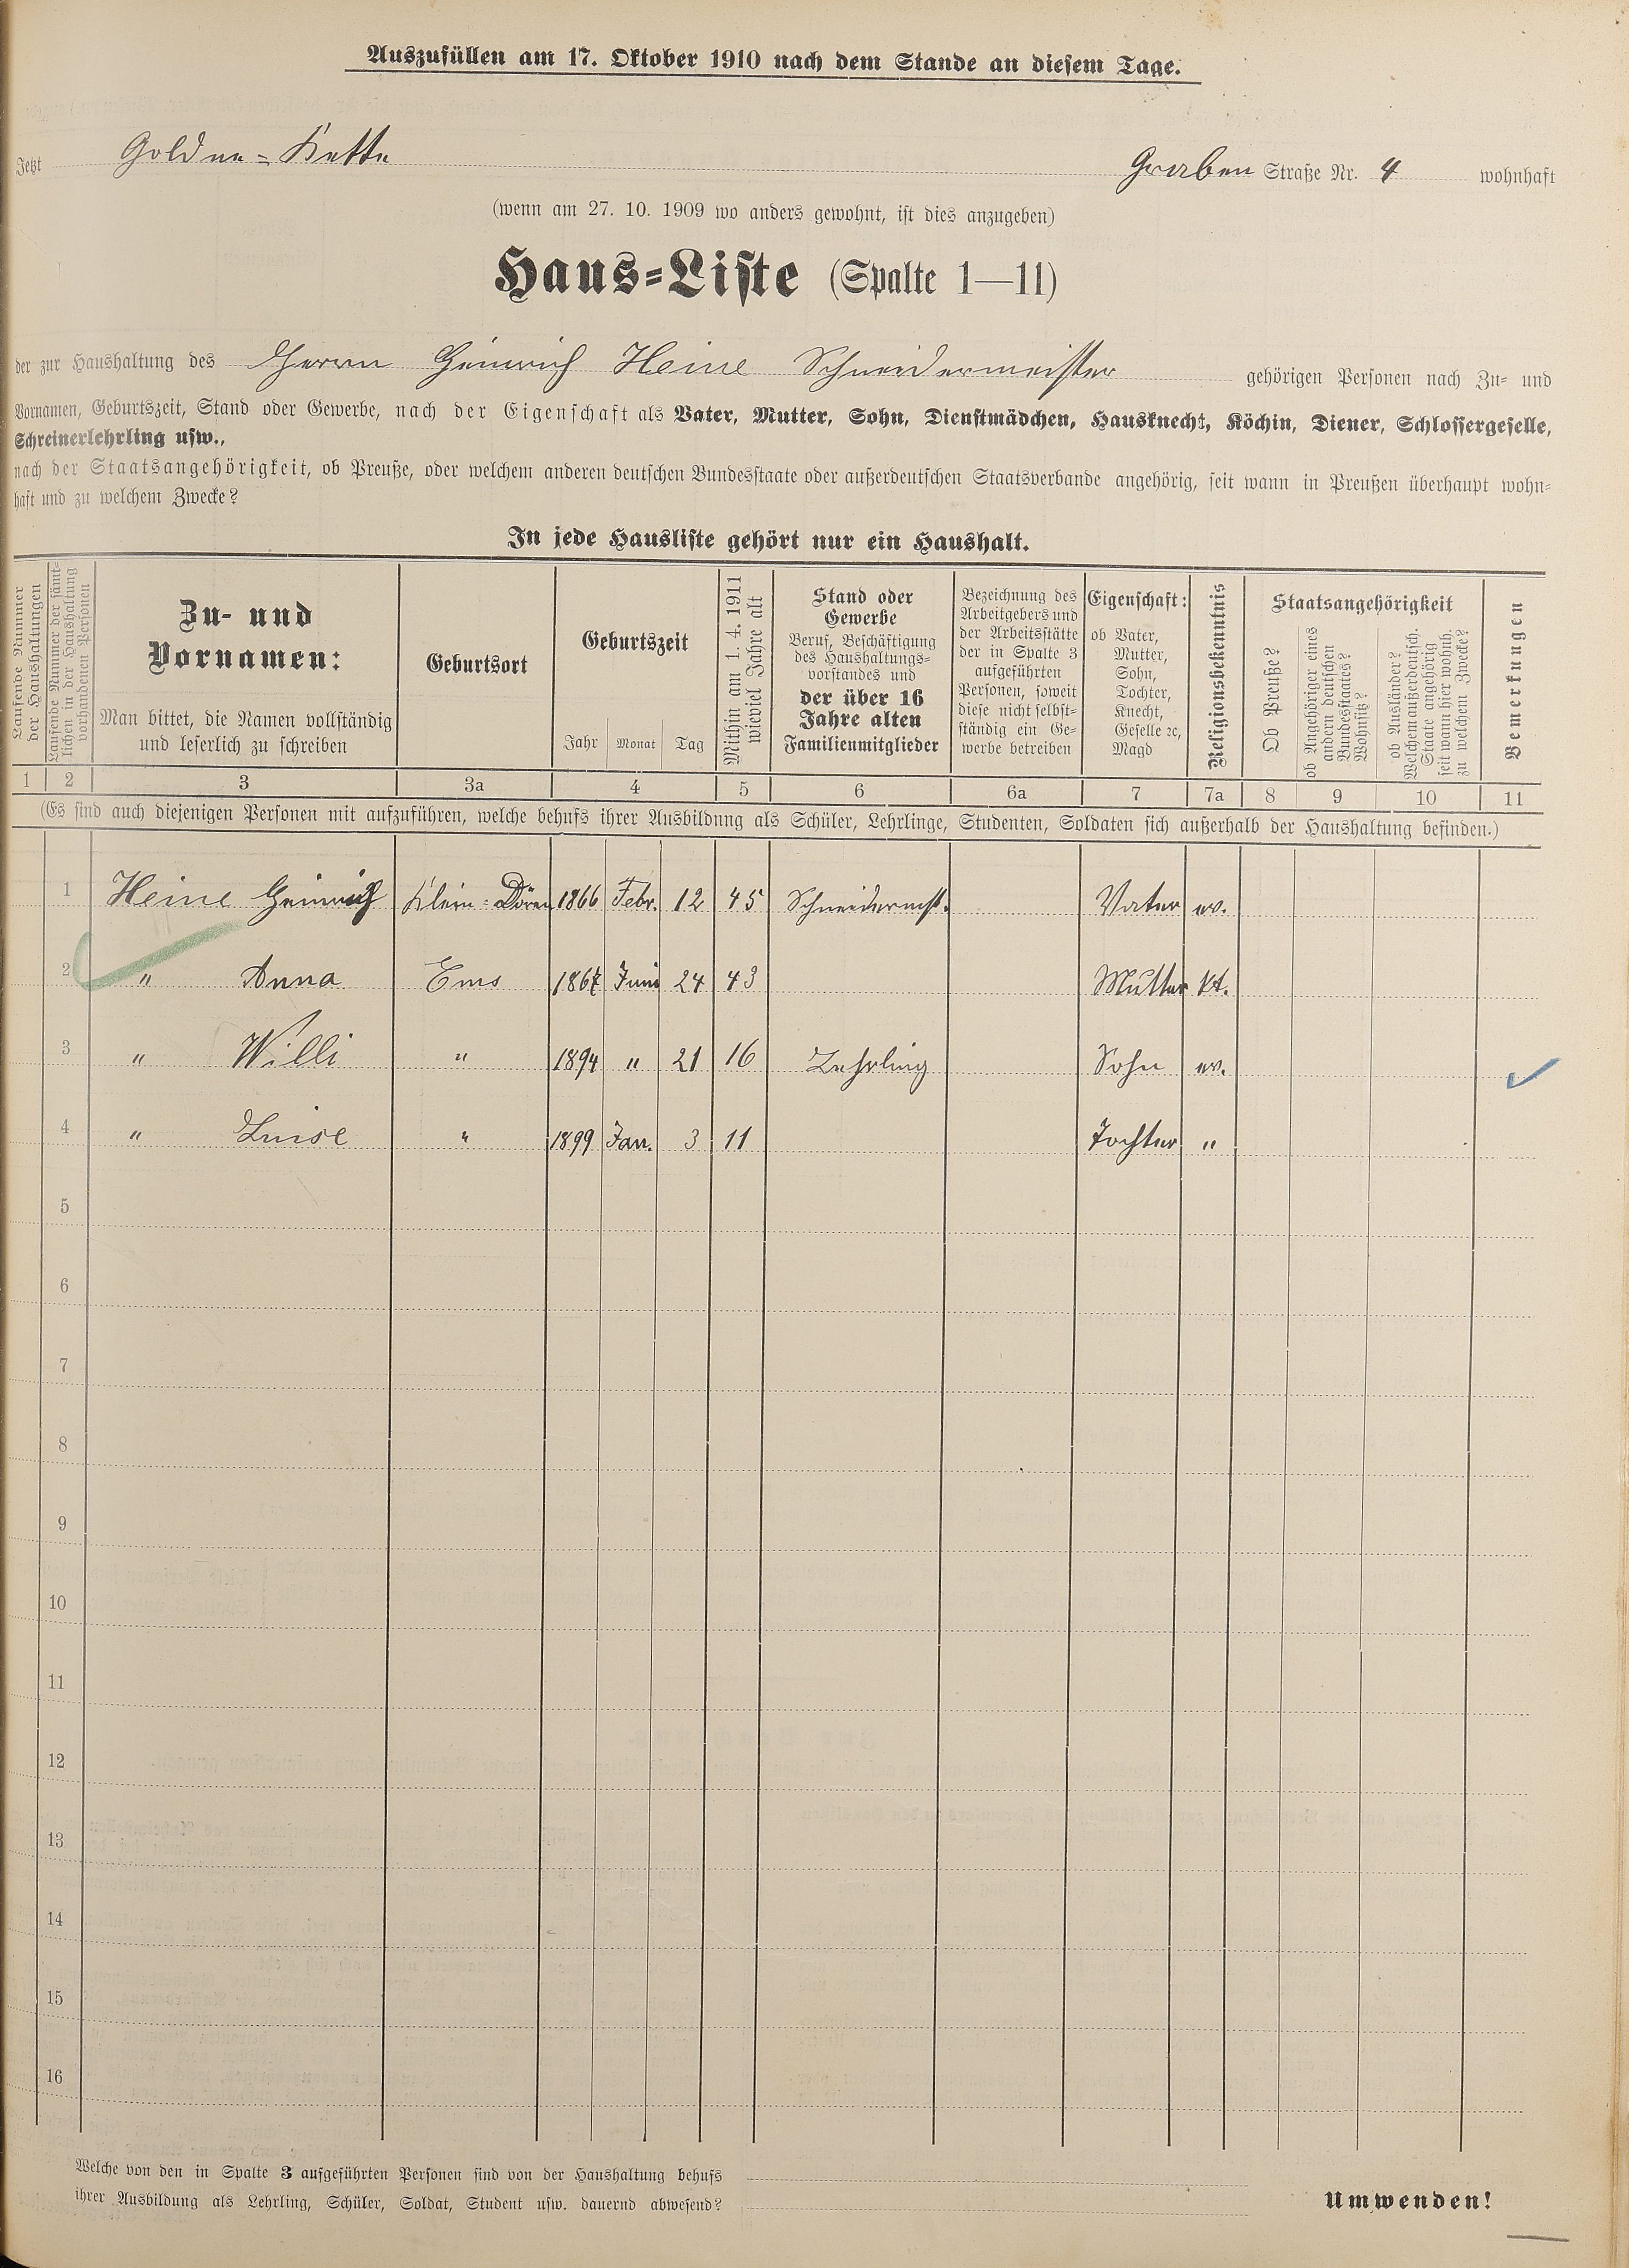 Auszufüllen am 17. Oktober 1910 nach dem Stande an diesem Tage.
Jetzt Goldne=Kette Graben Straße Nr. 4 wohnhaft
(wenn am 27. 10. 1909 wo anders gewohnt, ist dies anzugeben)
Haus=Liste (Spalte 1—11)
der zur Haushaltung des Herrn Heinrich Heine Schneidermeister gehörigen Personen nach Zu= und
Vornamen, Geburtszeit, Stand oder Gewerbe, nach der Eigenschaft als Vater, Mutter, Sohn, Dienstmädchen, Hausknecht, Köchin, Diener, Schlossergeselle,
Schreinerlehrling usw.,
nach der Staatsangehörigkeit, ob Preuße, oder welchem anderen deutschen Bundesstaate oder außerdeutschen Staatsverbande angehörig, seit wann in Preußen überhaupt wohn=
haft und zu welchem Zwecke?
In jede Hausliste gehört nur ein Haushalt.
Laufende Nummer
der Haushaltungen
Laufende Nummer der sämt=
lichen in der Haushaltung
vorhandenen Personen
Zu- und
Vornamen:
Man bittet, die Namen vollständig
und leserlich zu schreiben
Geburtsort
Geburtszeit
Jahr Monat Tag
Mithin am 1. 4. 1911
wieviel Jahre alt
Stand oder
Gewerbe
Beruf, Beschäftigung
des Haushaltungs=
vorstandes und
der über 16
Jahre alten
Familienmitglieder
Bezeichnung des
Arbeitgebers und
der Arbeitsstätte
der in Spalte 3
aufgeführten
Personen, soweit
diese nicht selbst=
ständig ein Ge=
werbe betreiben
Eigenschaft:
ob Vater,
Mutter,
Sohn,
Tochter,
Knecht,
Geselle ꝛc,
Magd
Religionsbekenntnis
Staatsangehörigkeit
Ob Preuße?
ob Angehöriger eines
andern deutschen
Bundesstaates?
Wohnsitz?
ob Ausländer?
Welchem außerdeutsch.
Staate angehörig
seit wann hier wohnh.
zu welchem Zwecke?
Bemerkungen
1 2 3 3a 4 5 6 6a 7 7a 8 9 10 11
(Es sind auch diejenigen Personen mit aufzuführen, welche behufs ihrer Ausbildung als Schüler, Lehrlinge, Studenten, Soldaten sich außerhalb der Haushaltung befinden.)
1 Heine Heinrich Klein=Dören 1866 Febr. 12 45 Schneidermst. Vater ev.
2 " Anna Ems 1867 Juni 24 43 Mutter kt.
3 " Willi " 1894 " 21 16 Lehrling Sohn ev.
4 " Luise " 1899 Jan. 3 11 Tochter "
5
6
7
8
9
10
11
12
13
14
15
16
Welche von den in Spalte 3 aufgeführten Personen sind von der Haushaltung behufs
ihrer Ausbildung als Lehrling, Schüler, Soldat, Student usw. dauernd abwesend?
Umwenden!